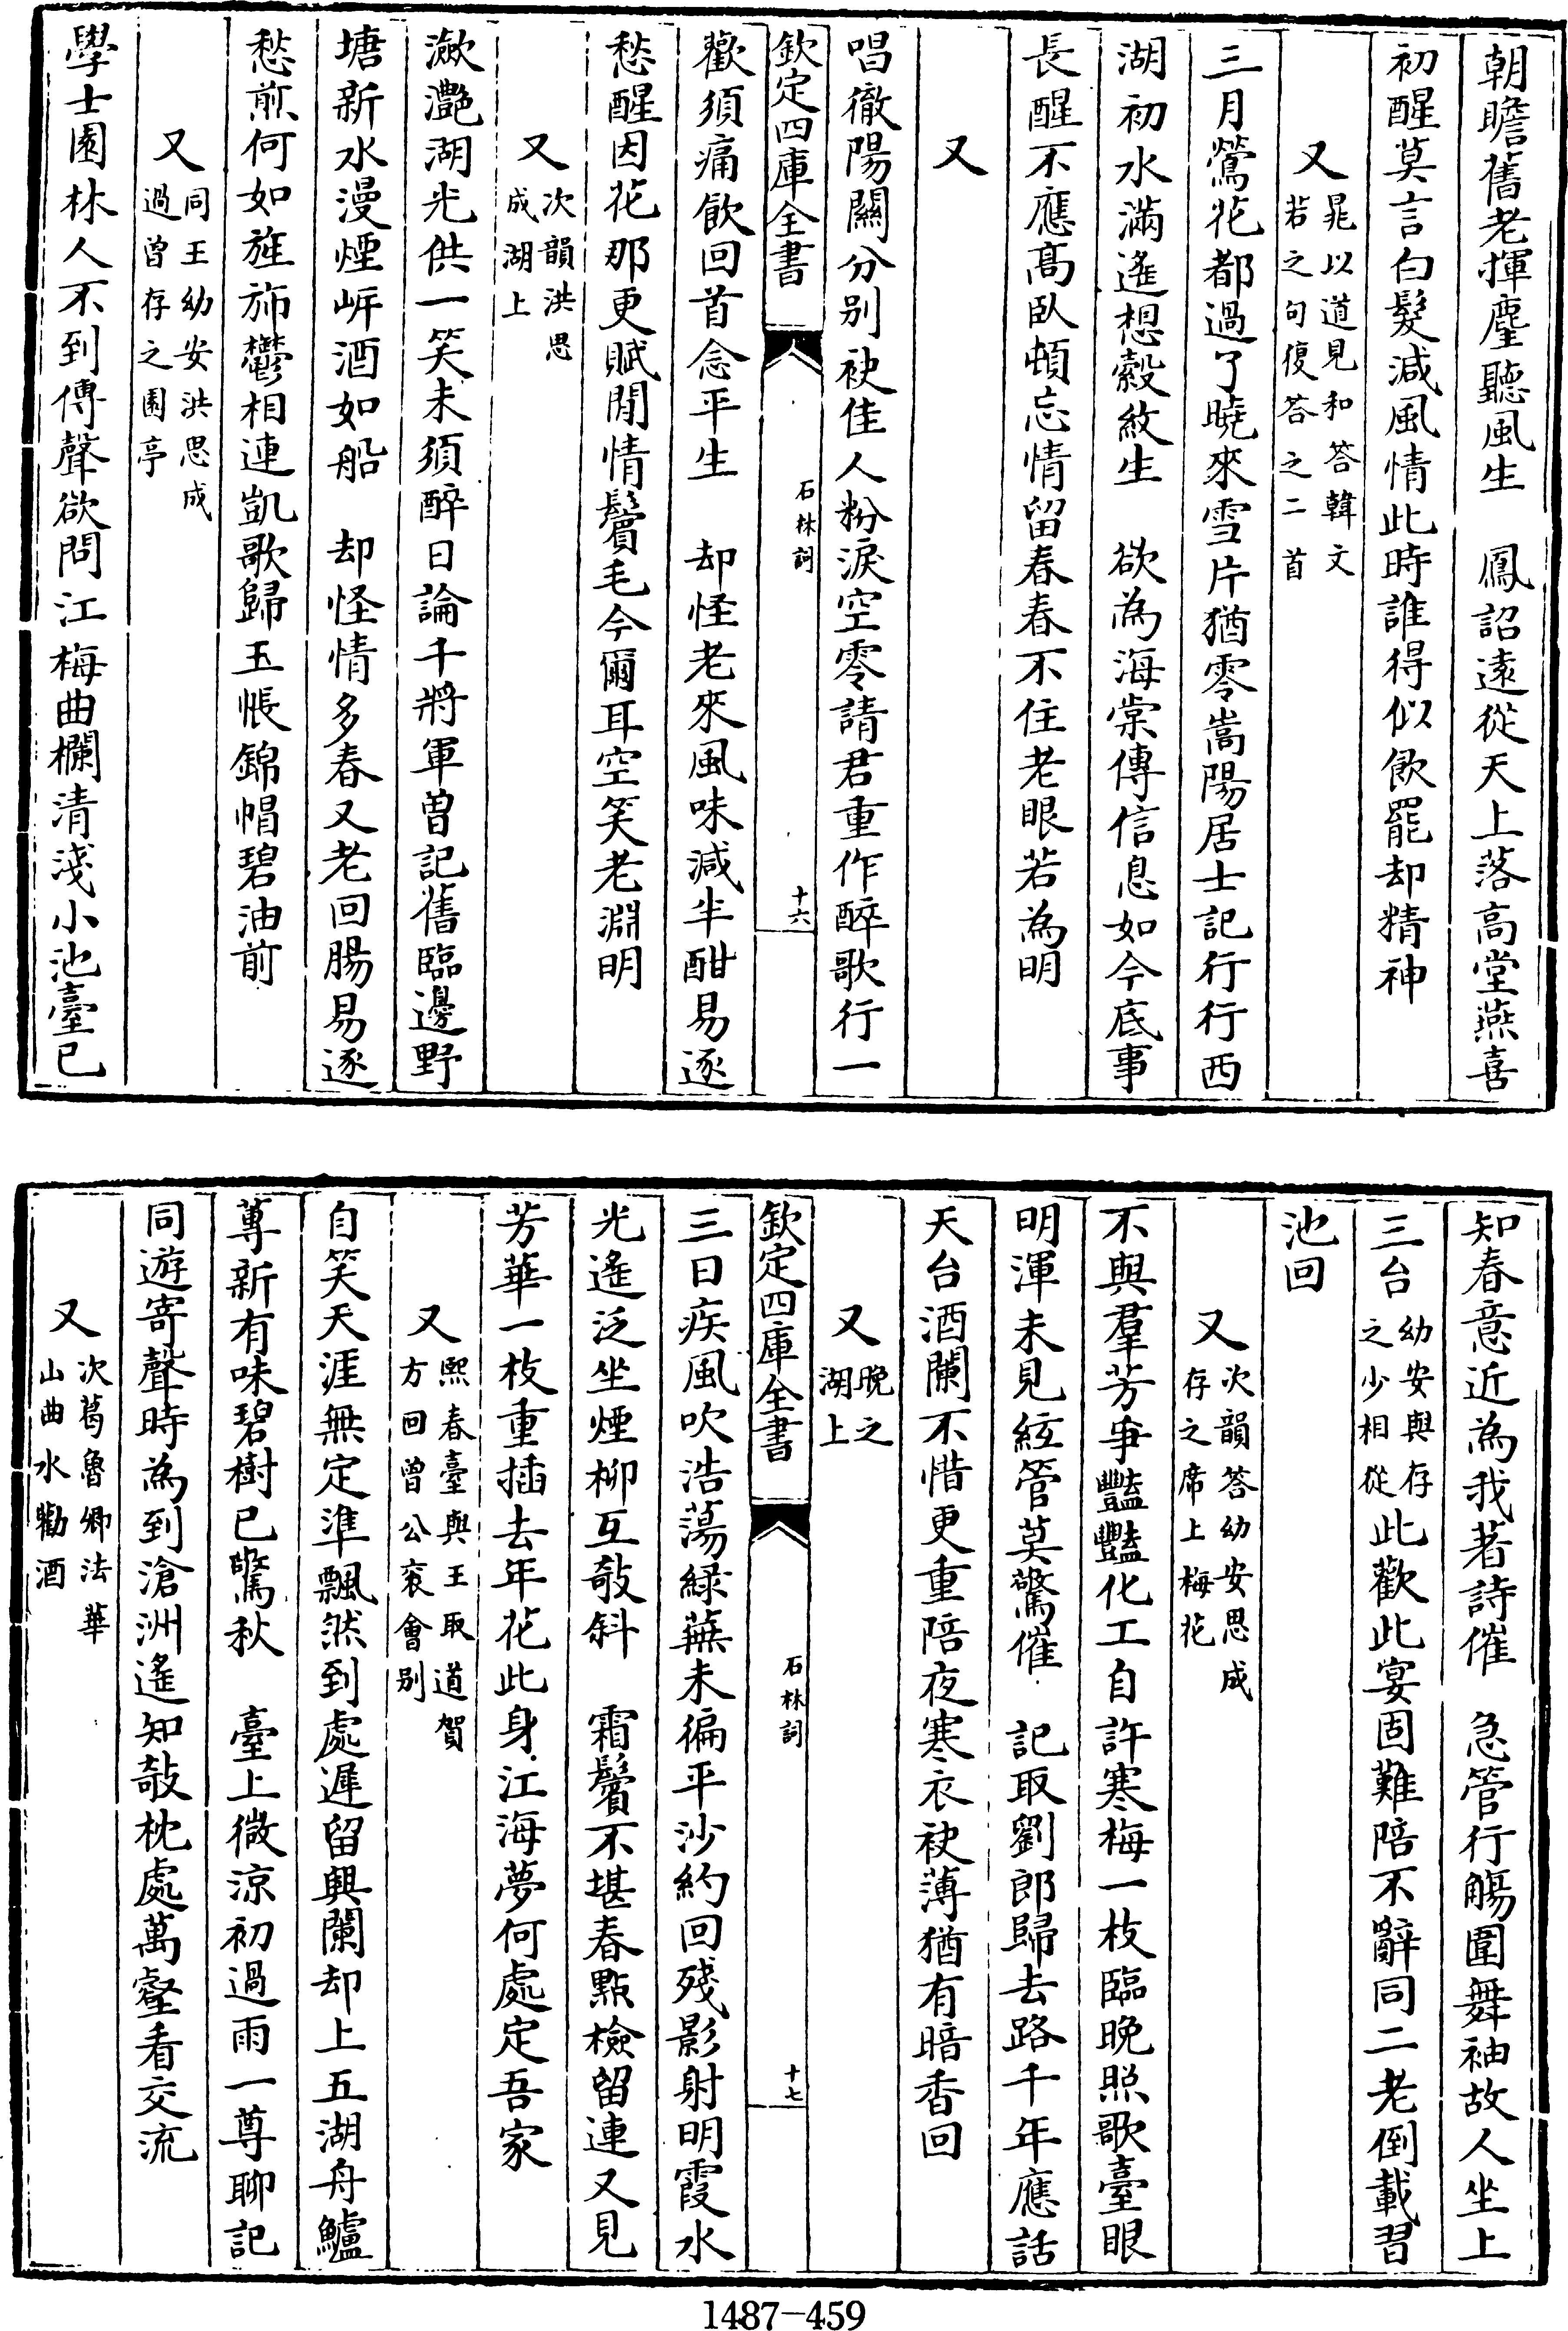 朝瞻舊老揮麈聽風生　鳳詔遠從天上落高堂燕喜
初醒莫言白髮減風情此時誰得似飲罷却精神
又晁以道見和答韓文
若之句復答之二首
三月鶯花都過了曉來雪片猶零嵩陽居士記行行西
湖初水滿遙想縠紋生　欲為海棠傳信息如今底事
長醒不應高臥頓忘情留春春不住老眼若為明
又
唱徹陽關分别袂佳人粉淚空零請君重作醉歌行一
欽定四庫全書
石林詞
十六
歡須痛飲回首念平生　却怪老來風味減半酣易逐
愁醒因花那更賦閒情鬢毛今爾耳空笑老淵明
又次韻洪思
成湖上
瀲灎湖光供一笑未須醉日論千將軍曾記舊臨邊野
塘新水漫煙岸酒如船　却怪情多春又老回腸易逐
愁煎何如旌斾鬱相連凱歌歸玉帳錦帽碧油前
又同王幼安洪思成
過曾存之園亭
學士園林人不到傳聲欲問江梅曲欄清淺小池臺已
知春意近為我著詩催　急管行觴圍舞袖故人坐上
三台幼安與存
之少相從此歡此宴固難陪不辭同二老倒載習
池回
又次韻答幼安思成
存之席上梅花
不與羣芳爭豔豔化工自許寒梅一枝臨晩照歌臺眼
明渾未見絃管莫驚催　記取劉郎歸去路千年應話
天台酒闌不惜更重陪夜寒衣袂薄猶有暗香回
又晚之
湖上
欽定四庫全書
石林詞
十七
三日疾風吹浩蕩緑蕪未徧平沙約回殘影射明霞水
光遙泛坐煙柳互敧斜　霜鬢不堪春點檢留連又見
芳華一枝重插去年花此身江海夢何處定吾家
又熙春臺與王取道賀
方回曾公衮會别
自笑天涯無定準飄然到處遲留興闌却上五湖舟鱸
蓴新有味碧樹已驚秋　臺上微涼初過雨一尊聊記
同遊寄聲時為到滄洲遙知敧枕處萬壑看交流
又次葛魯卿法華
山曲水勸酒
1487-459